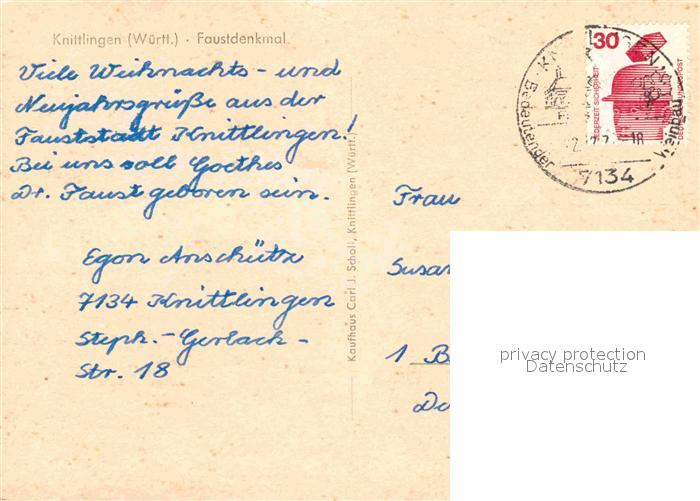 Knittlingen (Württ.) · Faustdenkmal
Viele Weihnachts- und
Neujahrsgrüße aus der
Fauststadt Knittlingen!
Bei uns soll Goethes
Dr. Faust geboren sein.
Egon Anschütz
7134 Knittlingen
Steph.-Gerlach-
Str. 18
Kaufhaus Carl J. Scholl, Knittlingen (Württ.)
30
JEDERZEIT SICHERHEIT
DEUTSCHE BUNDESPOST
Bedeutender
Weinbau
18
7134
Frau
Susan
1 B
privacy protection
Datenschutz